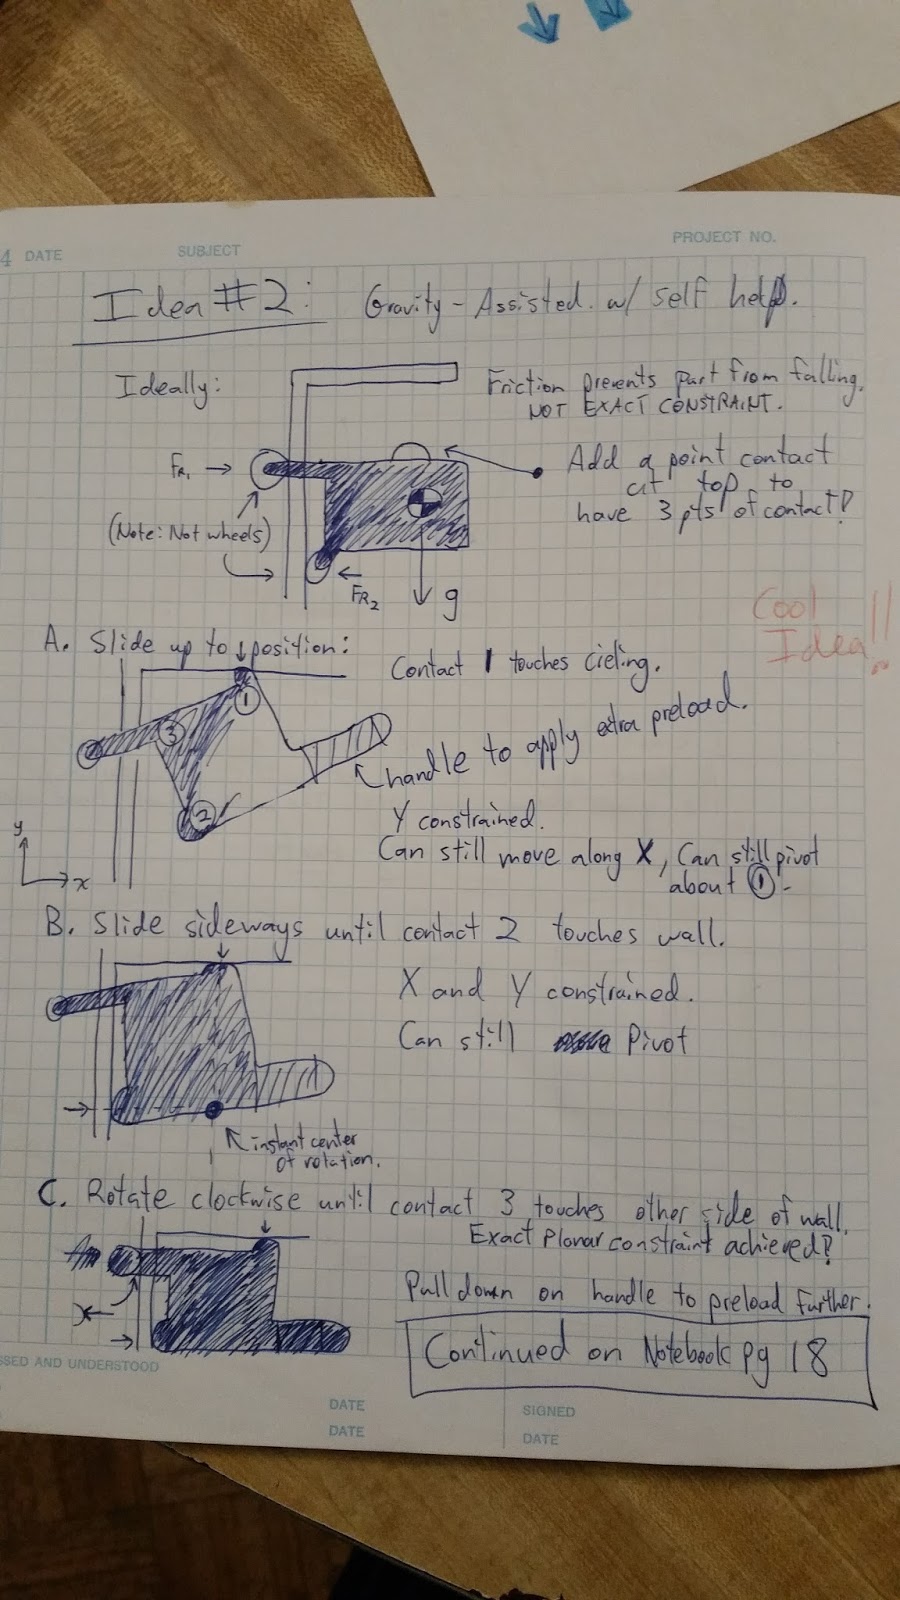 4 DATE SUBJECT PROJECT NO.
Idea #2: Gravity-Assisted. w/ self help.
Ideally:
Friction prevents part from falling.
NOT EXACT CONSTRAINT.
FR1 →
Add a point contact
at top to
have 3 pts of contact?
(Note: Not wheels)
FR2
g
Cool
Idea!!
A. Slide up to position:
Contact 1 touches cieling.
1
3
2
handle to apply extra preload.
Y constrained.
Can still move along X, Can still pivot
about 1.
y
x
B. Slide sideways until contact 2 touches wall.
X and Y constrained.
Can still Pivot
instant center
of rotation.
C. Rotate clockwise until contact 3 touches other side of wall.
Exact Planar constraint achieved?
Pull down on handle to preload further.
Continued on Notebook pg 18
SSED AND UNDERSTOOD
DATE SIGNED
DATE DATE